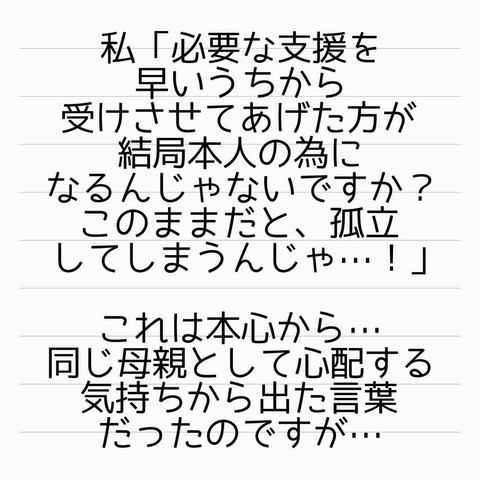 私「必要な支援を
早いうちから
受けさせてあげた方が
結局本人の為に
なるんじゃないですか？
このままだと、孤立
してしまうんじゃ…！」
これは本心から…
同じ母親として心配する
気持ちから出た言葉
だったのですが…